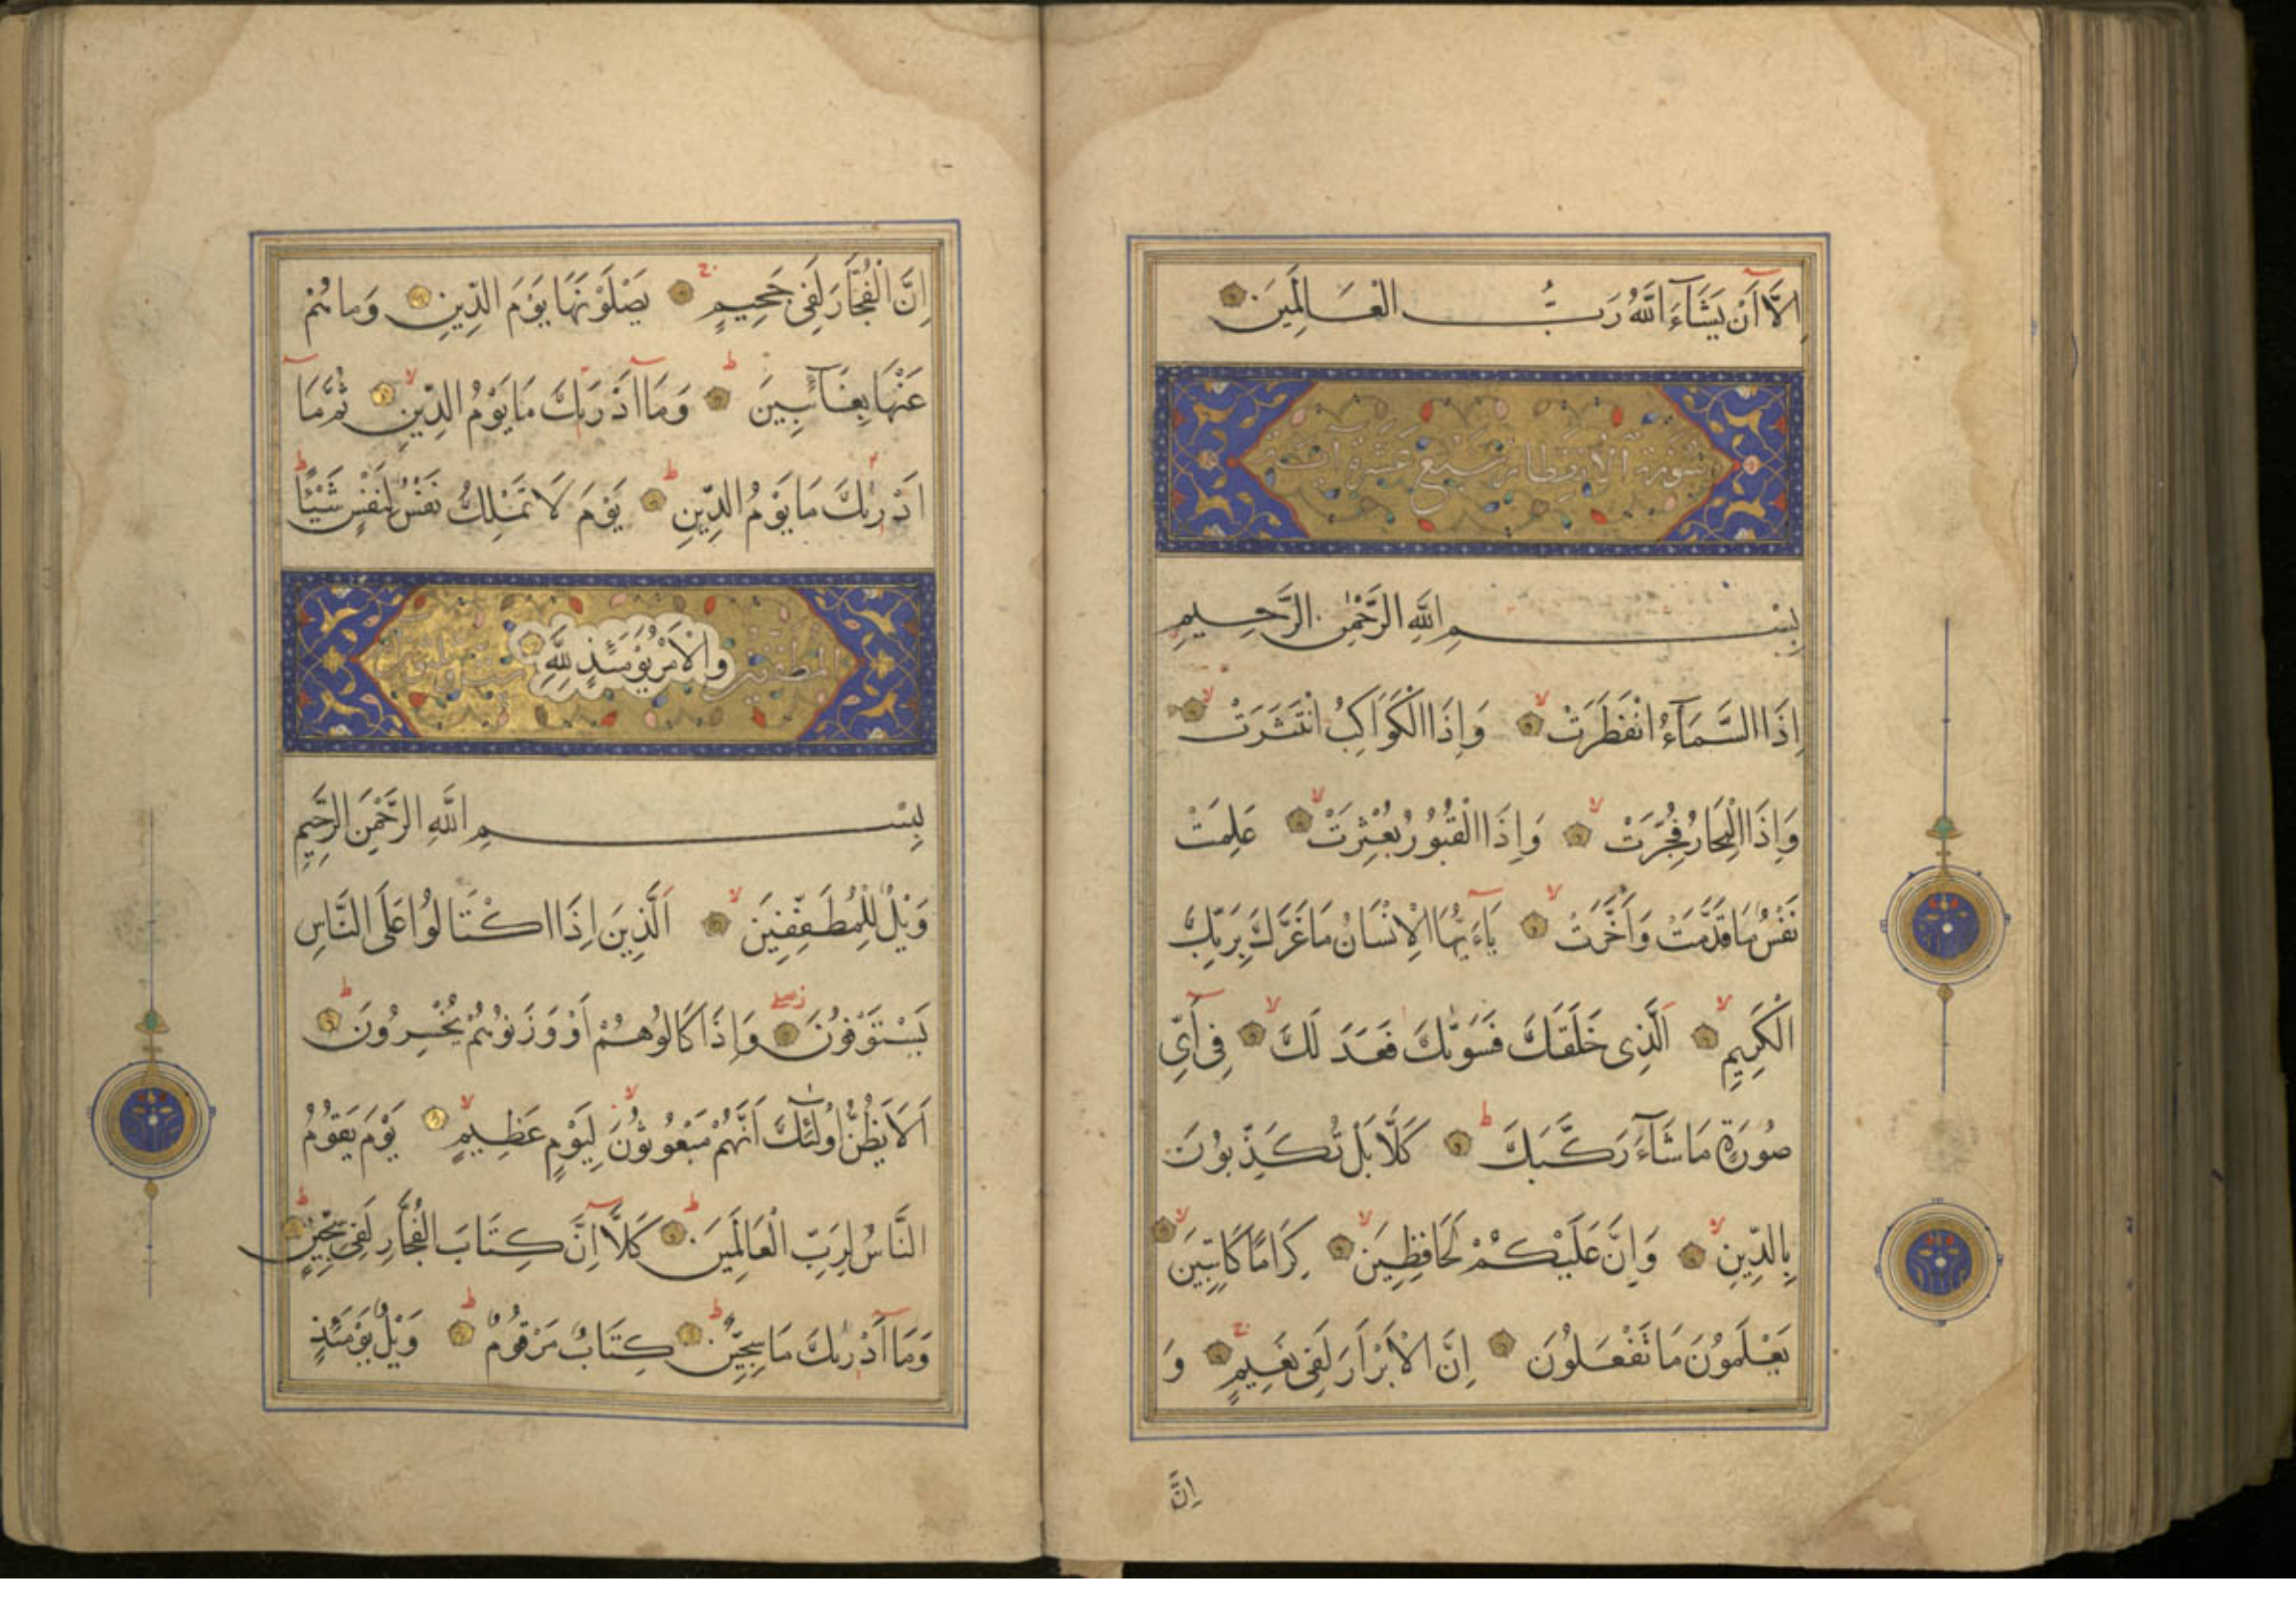 اِلَّا اَنْ يَشَآءَ اللّٰهُ رَبُّ الْعَالَمِينَ
سُورَةُ الْاِنْفِطَارِ سَبْعَ عَشْرَةَ اٰيَة
بِسْمِ اللّٰهِ الرَّحْمٰنِ الرَّحِيمِ
اِذَا السَّمَآءُ انْفَطَرَتْ وَاِذَا الْكَوَاكِبُ انْتَثَرَتْ
وَاِذَا الْبِحَارُ فُجِّرَتْ وَاِذَا الْقُبُورُ بُعْثِرَتْ عَلِمَتْ
نَفْسٌ مَا قَدَّمَتْ وَاَخَّرَتْ يَآءَيُّهَا الْاِنْسَانُ مَا غَرَّكَ بِرَبِّكَ
الْكَرِيمِ اَلَّذِى خَلَقَكَ فَسَوّٰيكَ فَعَدَ لَكَ فِى اَىِّ
صُورَةٍ مَا شَآءَ رَكَّبَكَ كَلَّا بَلْ تُكَذِّبُونَ
بِالدِّينِ وَاِنَّ عَلَيْكُمْ لَحَافِظِينَ كِرَامًا كَاتِبِينَ
يَعْلَمُونَ مَا تَفْعَلُونَ اِنَّ الْاَبْرَارَ لَفِى نَعِيمٍ وَ
اِنَّ
اِنَّ الْفُجَّارَ لَفِى جَحِيمٍ يَصْلَوْنَهَا يَوْمَ الدِّينِ وَمَا هُمْ
عَنْهَا بِغَآئِبِينَ وَمَا اَدْرٰيكَ مَا يَوْمُ الدِّينِ ثُمَّ مَآ
اَدْرٰيكَ مَا يَوْمُ الدِّينِ يَوْمَ لَا تَمْلِكُ نَفْسٌ لِنَفْسٍ شَيْئًا
وَالْاَمْرُ يَوْمَئِذٍ لِلّٰهِ
بِسْمِ اللّٰهِ الرَّحْمٰنِ الرَّحِيمِ
وَيْلٌ لِلْمُطَفِّفِينَ اَلَّذِينَ اِذَا اكْتَالُوا عَلَى النَّاسِ
يَسْتَوْفُونَ وَاِذَا كَالُوهُمْ اَوْ وَزَنُوهُمْ يُخْسِرُونَ
اَلَا يَظُنُّ اُولٰٓئِكَ اَنَّهُمْ مَبْعُوثُونَ لِيَوْمٍ عَظِيمٍ يَوْمَ يَقُومُ
النَّاسُ لِرَبِّ الْعَالَمِينَ كَلَّآ اِنَّ كِتَابَ الْفُجَّارِ لَفِى سِجِّينٍ
وَمَآ اَدْرٰيكَ مَا سِجِّينٌ كِتَابٌ مَرْقُومٌ وَيْلٌ يَوْمَئِذٍ